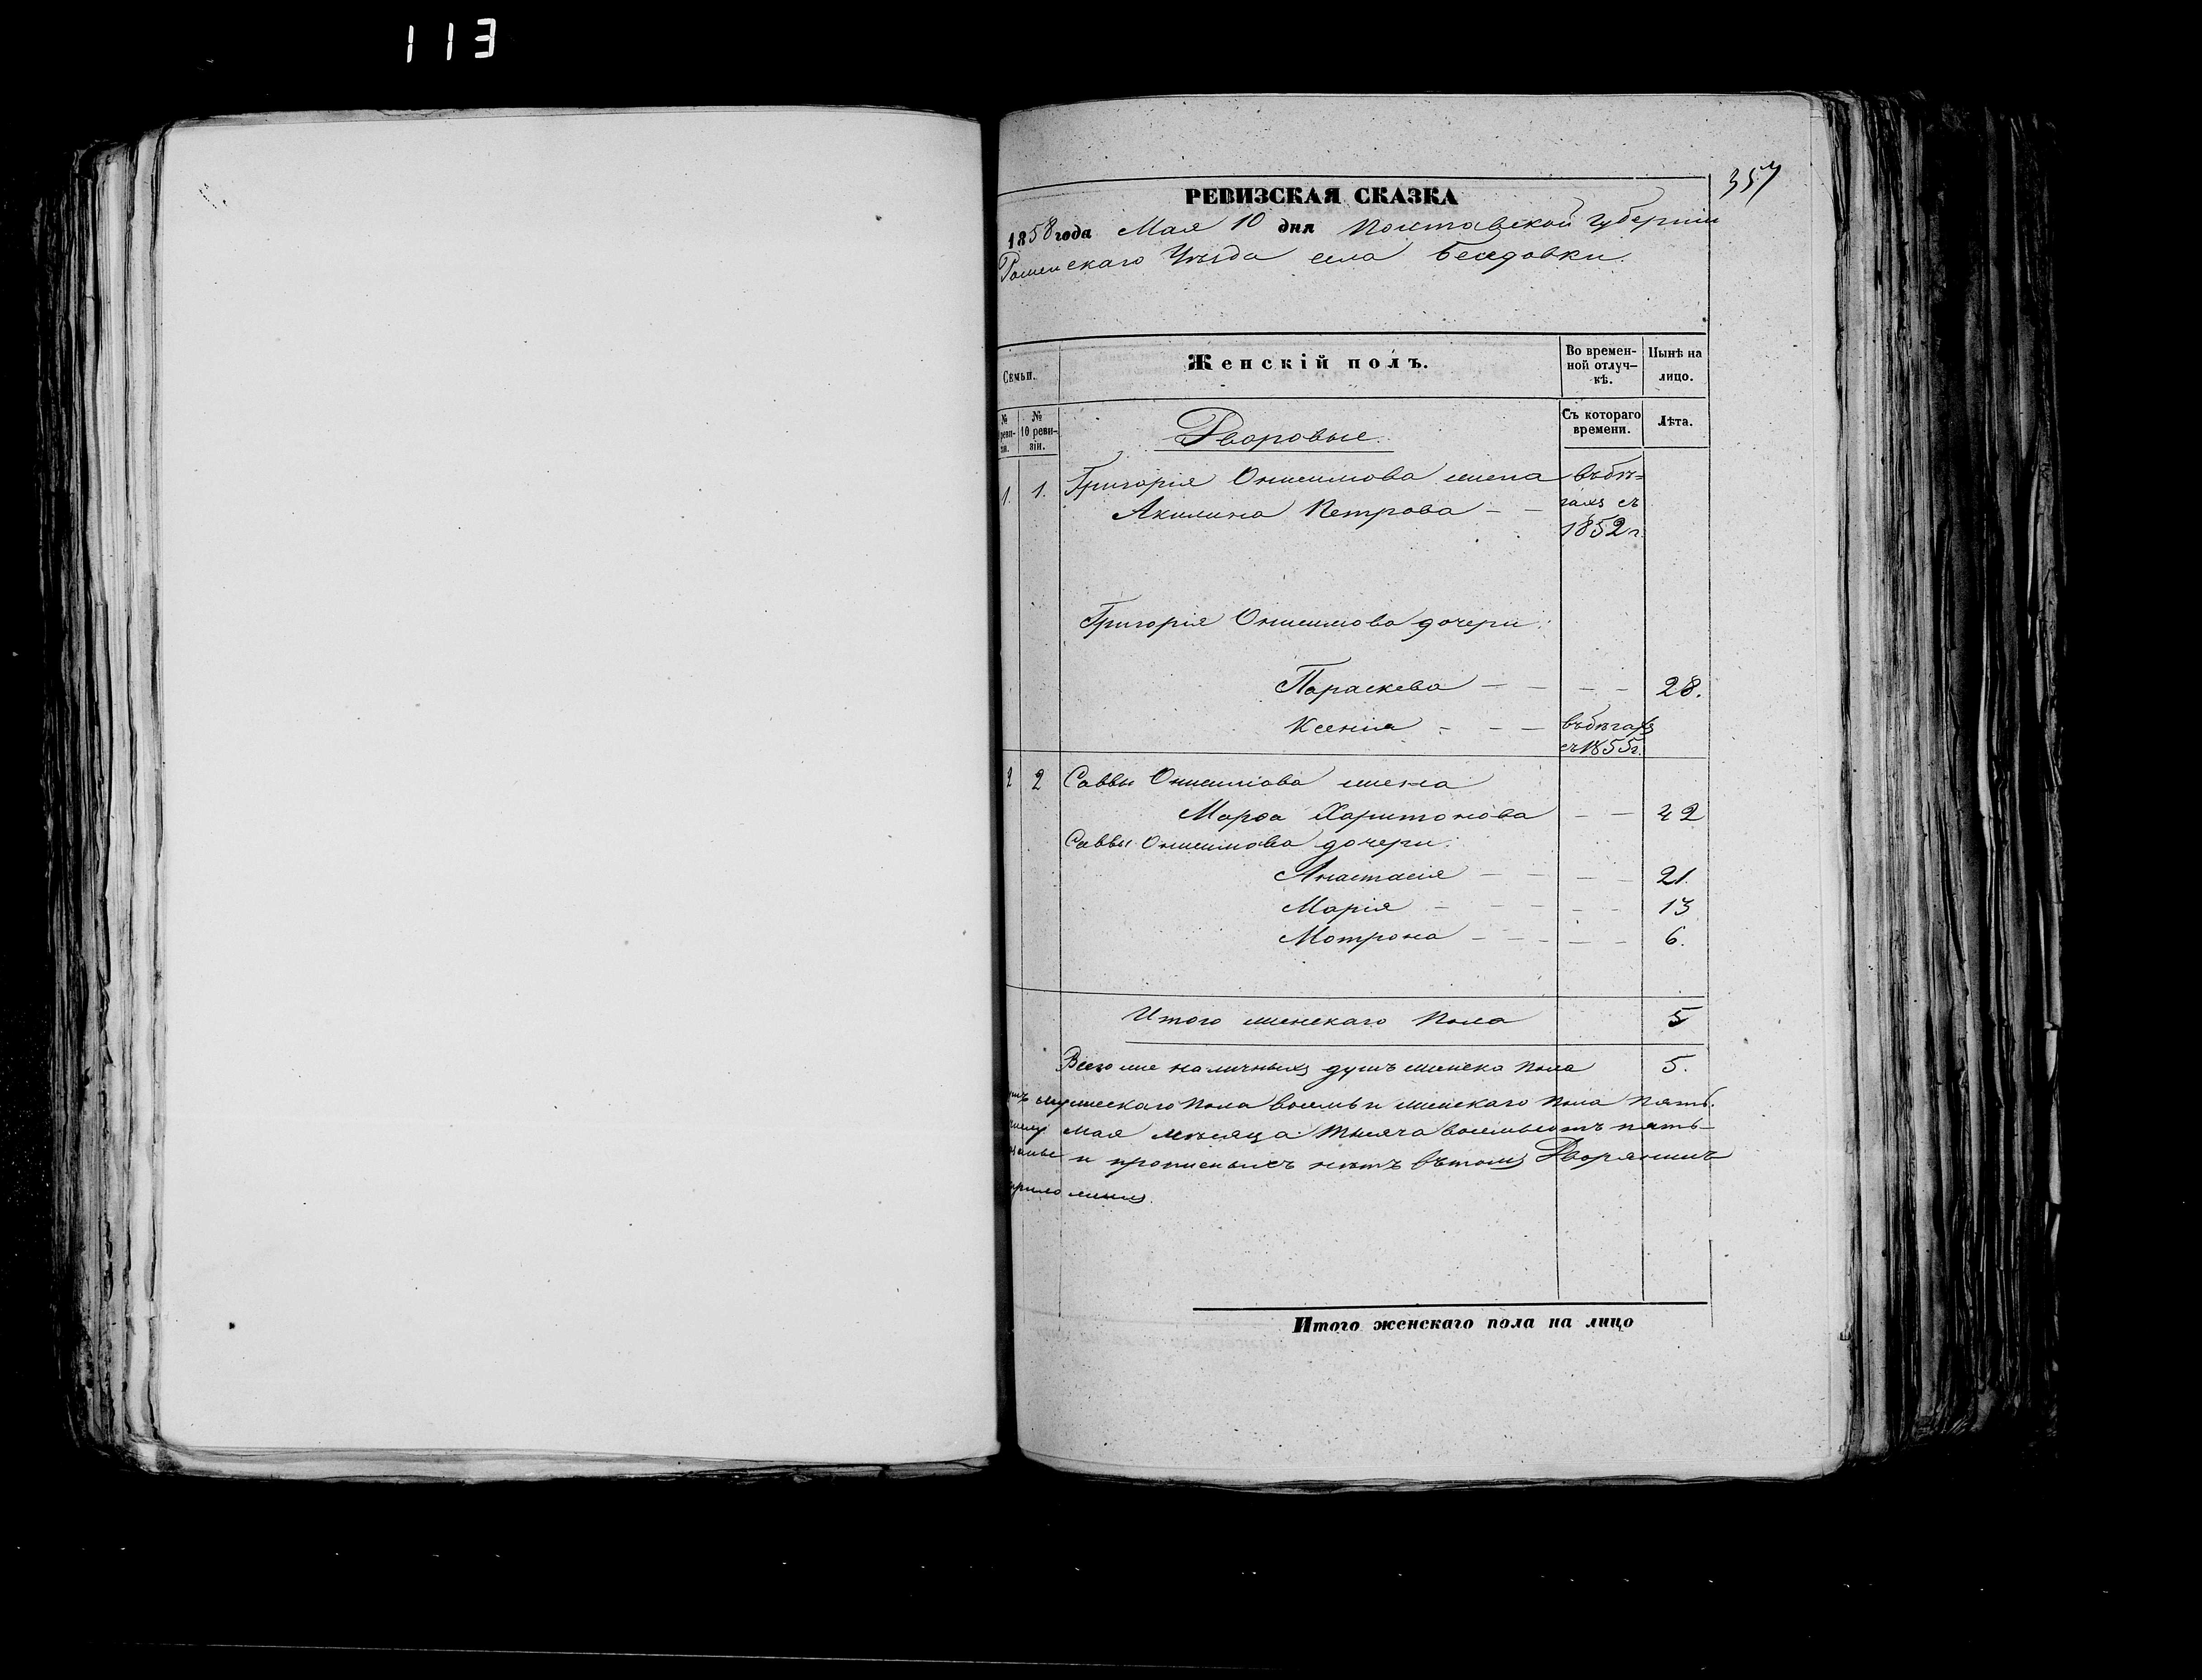 113
357
РЕВИЗСКАЯ СКАЗКА
1858 года Мая 10 дня Полтавской Губерніи
Роменскаго Уѣзда села Беседовки
Семьи.
Женскій полъ.
Во времен-
ной отлуч-
кѣ.
Нынѣ на
лицо.
№
реви-
зіи.
№
10 реви-
зіи.
Дворовые.
Съ котораго
времени.
Лѣта.
1. 1. Григорія Онисимова жена въ бѣ-
Акилина Петрова — — гахъ съ
1852 г.
Григорія Онисимова дочери:
Параскева — — — — 28.
Ксенія — — — въ бѣгахъ
съ 1855 г.
2 2 Саввы Онисимова жена
Марѳа Харитонова — — 42
Саввы Онисимова дочери:
Анастасія — — — — 21.
Марія — — — — — 13
Мотрона — — — — — 6.
Итого женскаго пола 5
Всего же наличныхъ душъ женска пола 5.
мужескаго пола восемь и женскаго пола пять.
Мая мѣсяца тысяча восемьсотъ пять-
и прописныхъ нѣтъ въ томъ Дворянинъ
Итого женскаго пола на лицо